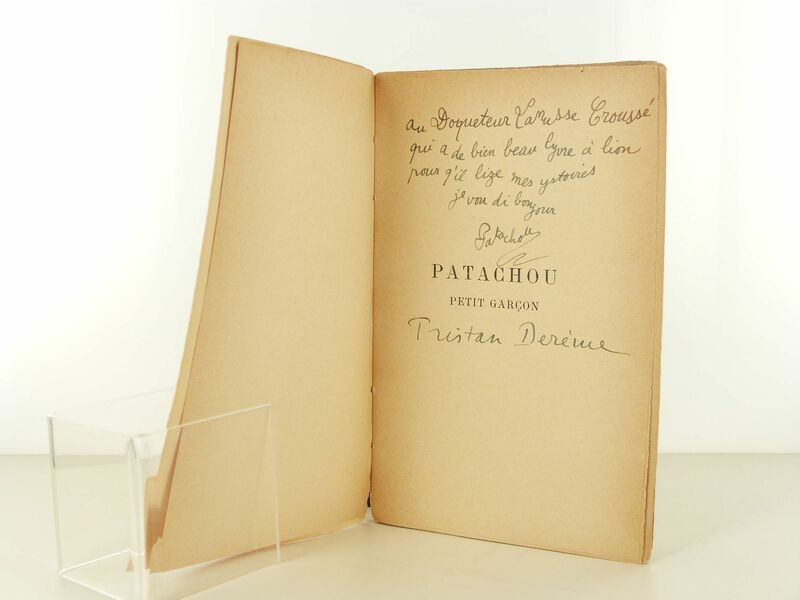 au Doqueteur Lamusse Croussé
qui a de bien beau lyvre à lion
pour q'il lize mes ystoires
je vou di bonjour
Patachou
PATACHOU
PETIT GARÇON
Tristan Derème